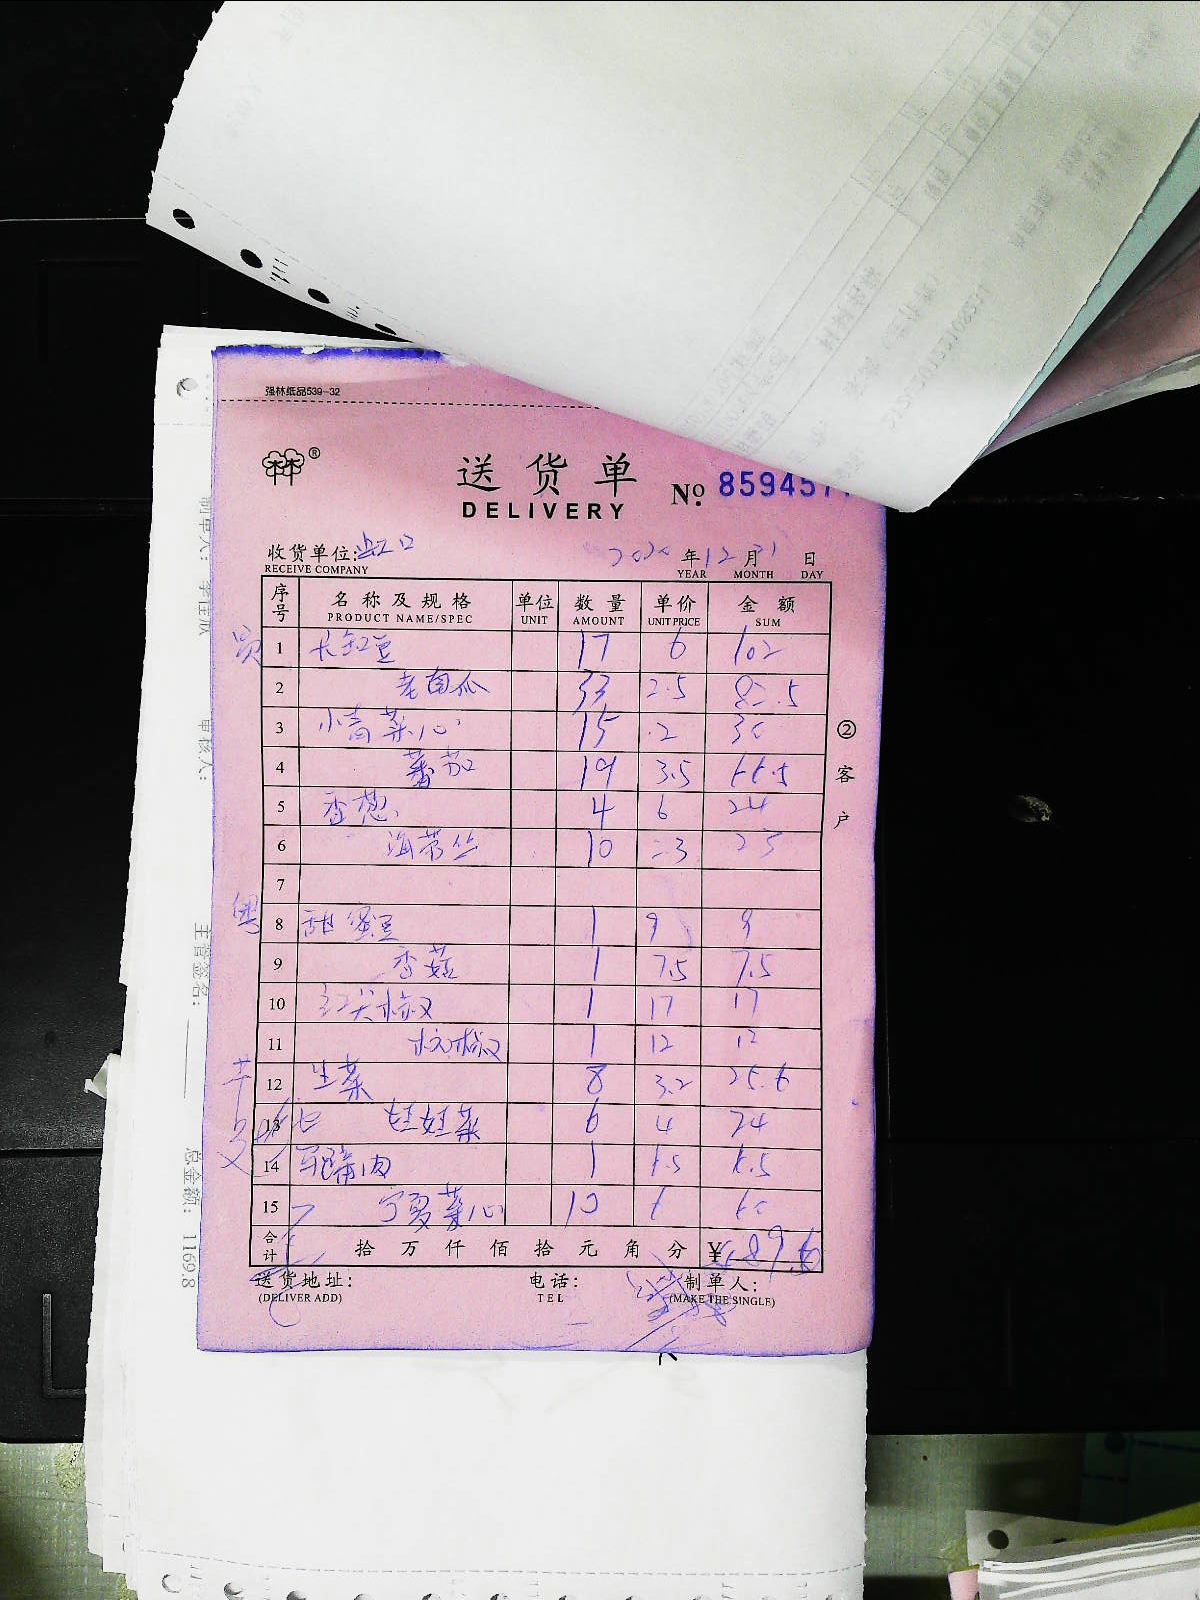 强林纸品539-32
送货单
№ 859457
DELIVERY
收货单位: 2020年12月31日
RECEIVE COMPANY YEAR MONTH DAY
序号 名称及规格 单位 数量 单价 金额
PRODUCT NAME/SPEC UNIT AMOUNT UNIT PRICE SUM
1 长缸豆 17 6 102
2 老南瓜 33 2.5 82.5
3 小青菜心 15 2 30
4 蕃茄 19 3.5 66.5
5 香葱 4 6 24
6 海带丝 10 2.3 23
7
粤 8 甜蜜豆 1 9 9
9 香菇 1 7.5 7.5
10 红尖椒 1 17 17
11 杭椒 1 12 12
12 生菜 8 3.2 25.6
13 娃娃菜 6 4 24
14 马蹄肉 1 5.5
15 宁夏菜心 10 6 60
合计 拾 万 仟 佰 拾 元 角 分 ¥
送货地址: 电话: 制单人:
(DELIVER ADD) TEL (MAKE THE SINGLE)
② 客户
审核人:
主管签名:
总金额: 1169.8